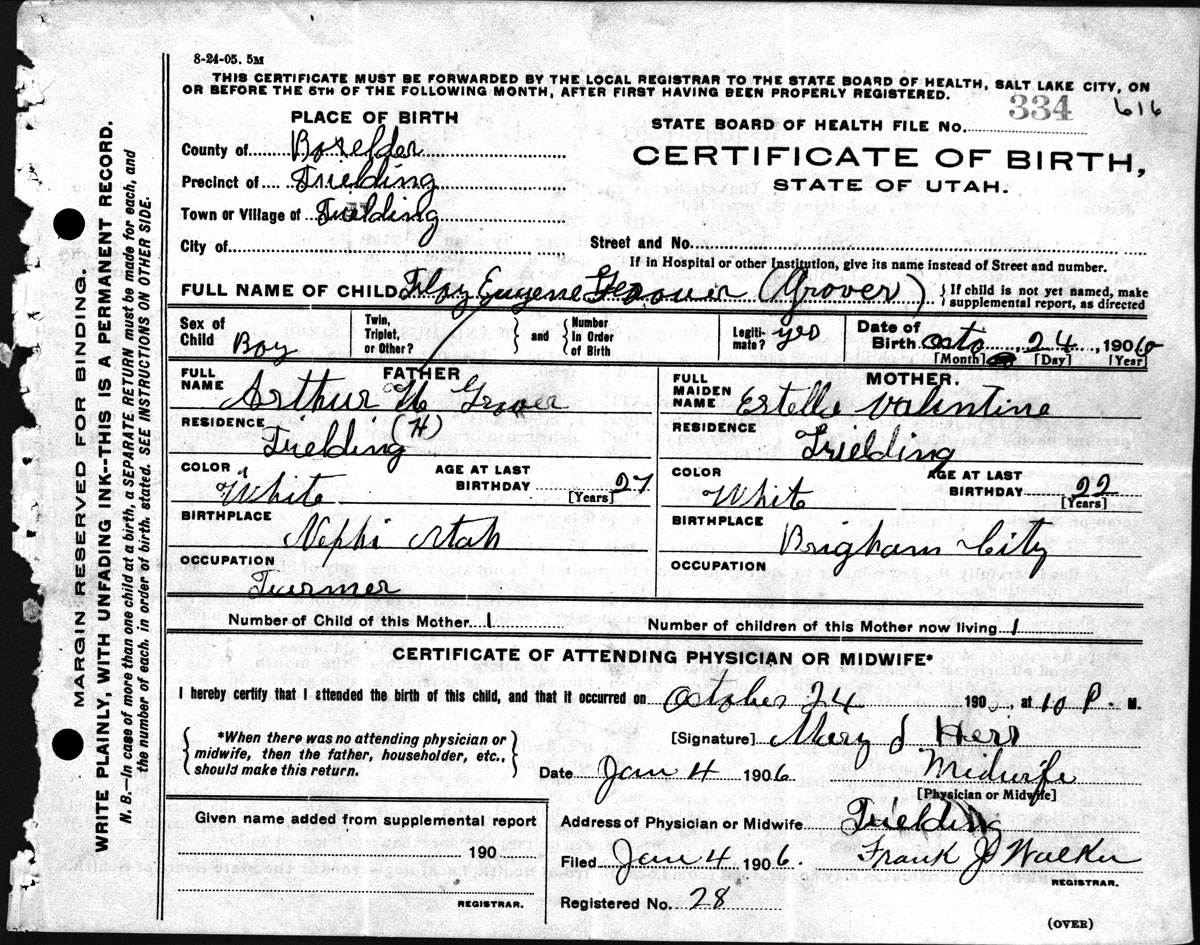 8-24-05. 5M
THIS CERTIFICATE MUST BE FORWARDED BY THE LOCAL REGISTRAR TO THE STATE BOARD OF HEALTH, SALT LAKE CITY, ON
OR BEFORE THE 5TH OF THE FOLLOWING MONTH, AFTER FIRST HAVING BEEN PROPERLY REGISTERED.
334 616
PLACE OF BIRTH
STATE BOARD OF HEALTH FILE No.
County of Boxelder
CERTIFICATE OF BIRTH,
Precinct of Fielding
STATE OF UTAH.
Town or Village of Fielding
City of
Street and No.
If in Hospital or other Institution, give its name instead of Street and number.
FULL NAME OF CHILD Floy Eugene (Grover)
{ If child is not yet named, make
supplemental report, as directed
Sex of Child Boy
Twin, Triplet, or Other?
and
Number In Order of Birth
Legiti-mate? yes
Date of Birth Octo 24, 1906
[Month] [Day] [Year]
FATHER
FULL NAME Arthur H Grover
(H)
RESIDENCE Fielding
COLOR White
AGE AT LAST BIRTHDAY 27
[Years]
BIRTHPLACE Nephi Utah
OCCUPATION Farmer
MOTHER.
FULL MAIDEN NAME Estella Valentine
RESIDENCE Fielding
COLOR White
AGE AT LAST BIRTHDAY 22
[Years]
BIRTHPLACE Brigham City
OCCUPATION
Number of Child of this Mother 1 Number of children of this Mother now living 1
CERTIFICATE OF ATTENDING PHYSICIAN OR MIDWIFE*
I hereby certify that I attended the birth of this child, and that it occurred on October 24 190 , at 10 P. M.
*When there was no attending physician or
midwife, then the father, householder, etc.,
should make this return.
[Signature] Mary J Herr
Date Jan 4 1906. Midwife
[Physician or Midwife]
Given name added from supplemental report
190
REGISTRAR.
Address of Physician or Midwife Fielding
Filed Jan 4 1906. Frank J Walker
REGISTRAR.
Registered No. 28
(OVER)
MARGIN RESERVED FOR BINDING.
WRITE PLAINLY, WITH UNFADING INK--THIS IS A PERMANENT RECORD.
N. B.—In case of more than one child at a birth, a SEPARATE RETURN must be made for each, and
the number of each, in order of birth stated. SEE INSTRUCTIONS ON OTHER SIDE.